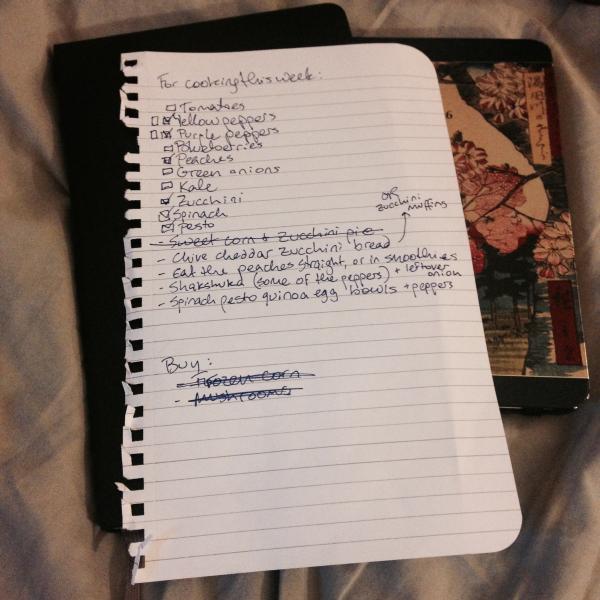 For cooking this week:
Tomatoes
Yellow peppers
Purple peppers
Blueberries
Peaches
Green onions
Kale
Zucchini
Spinach
Pesto
- Sweet corn & Zucchini pie
- Chive cheddar zucchini bread
OR zucchini muffins
- Eat the peaches straight, or in smoothies
- Shakshuka (some of the peppers) + leftover onion
- Spinach pesto quinoa egg bowls + peppers
Buy:
- Frozen corn
- Mushrooms